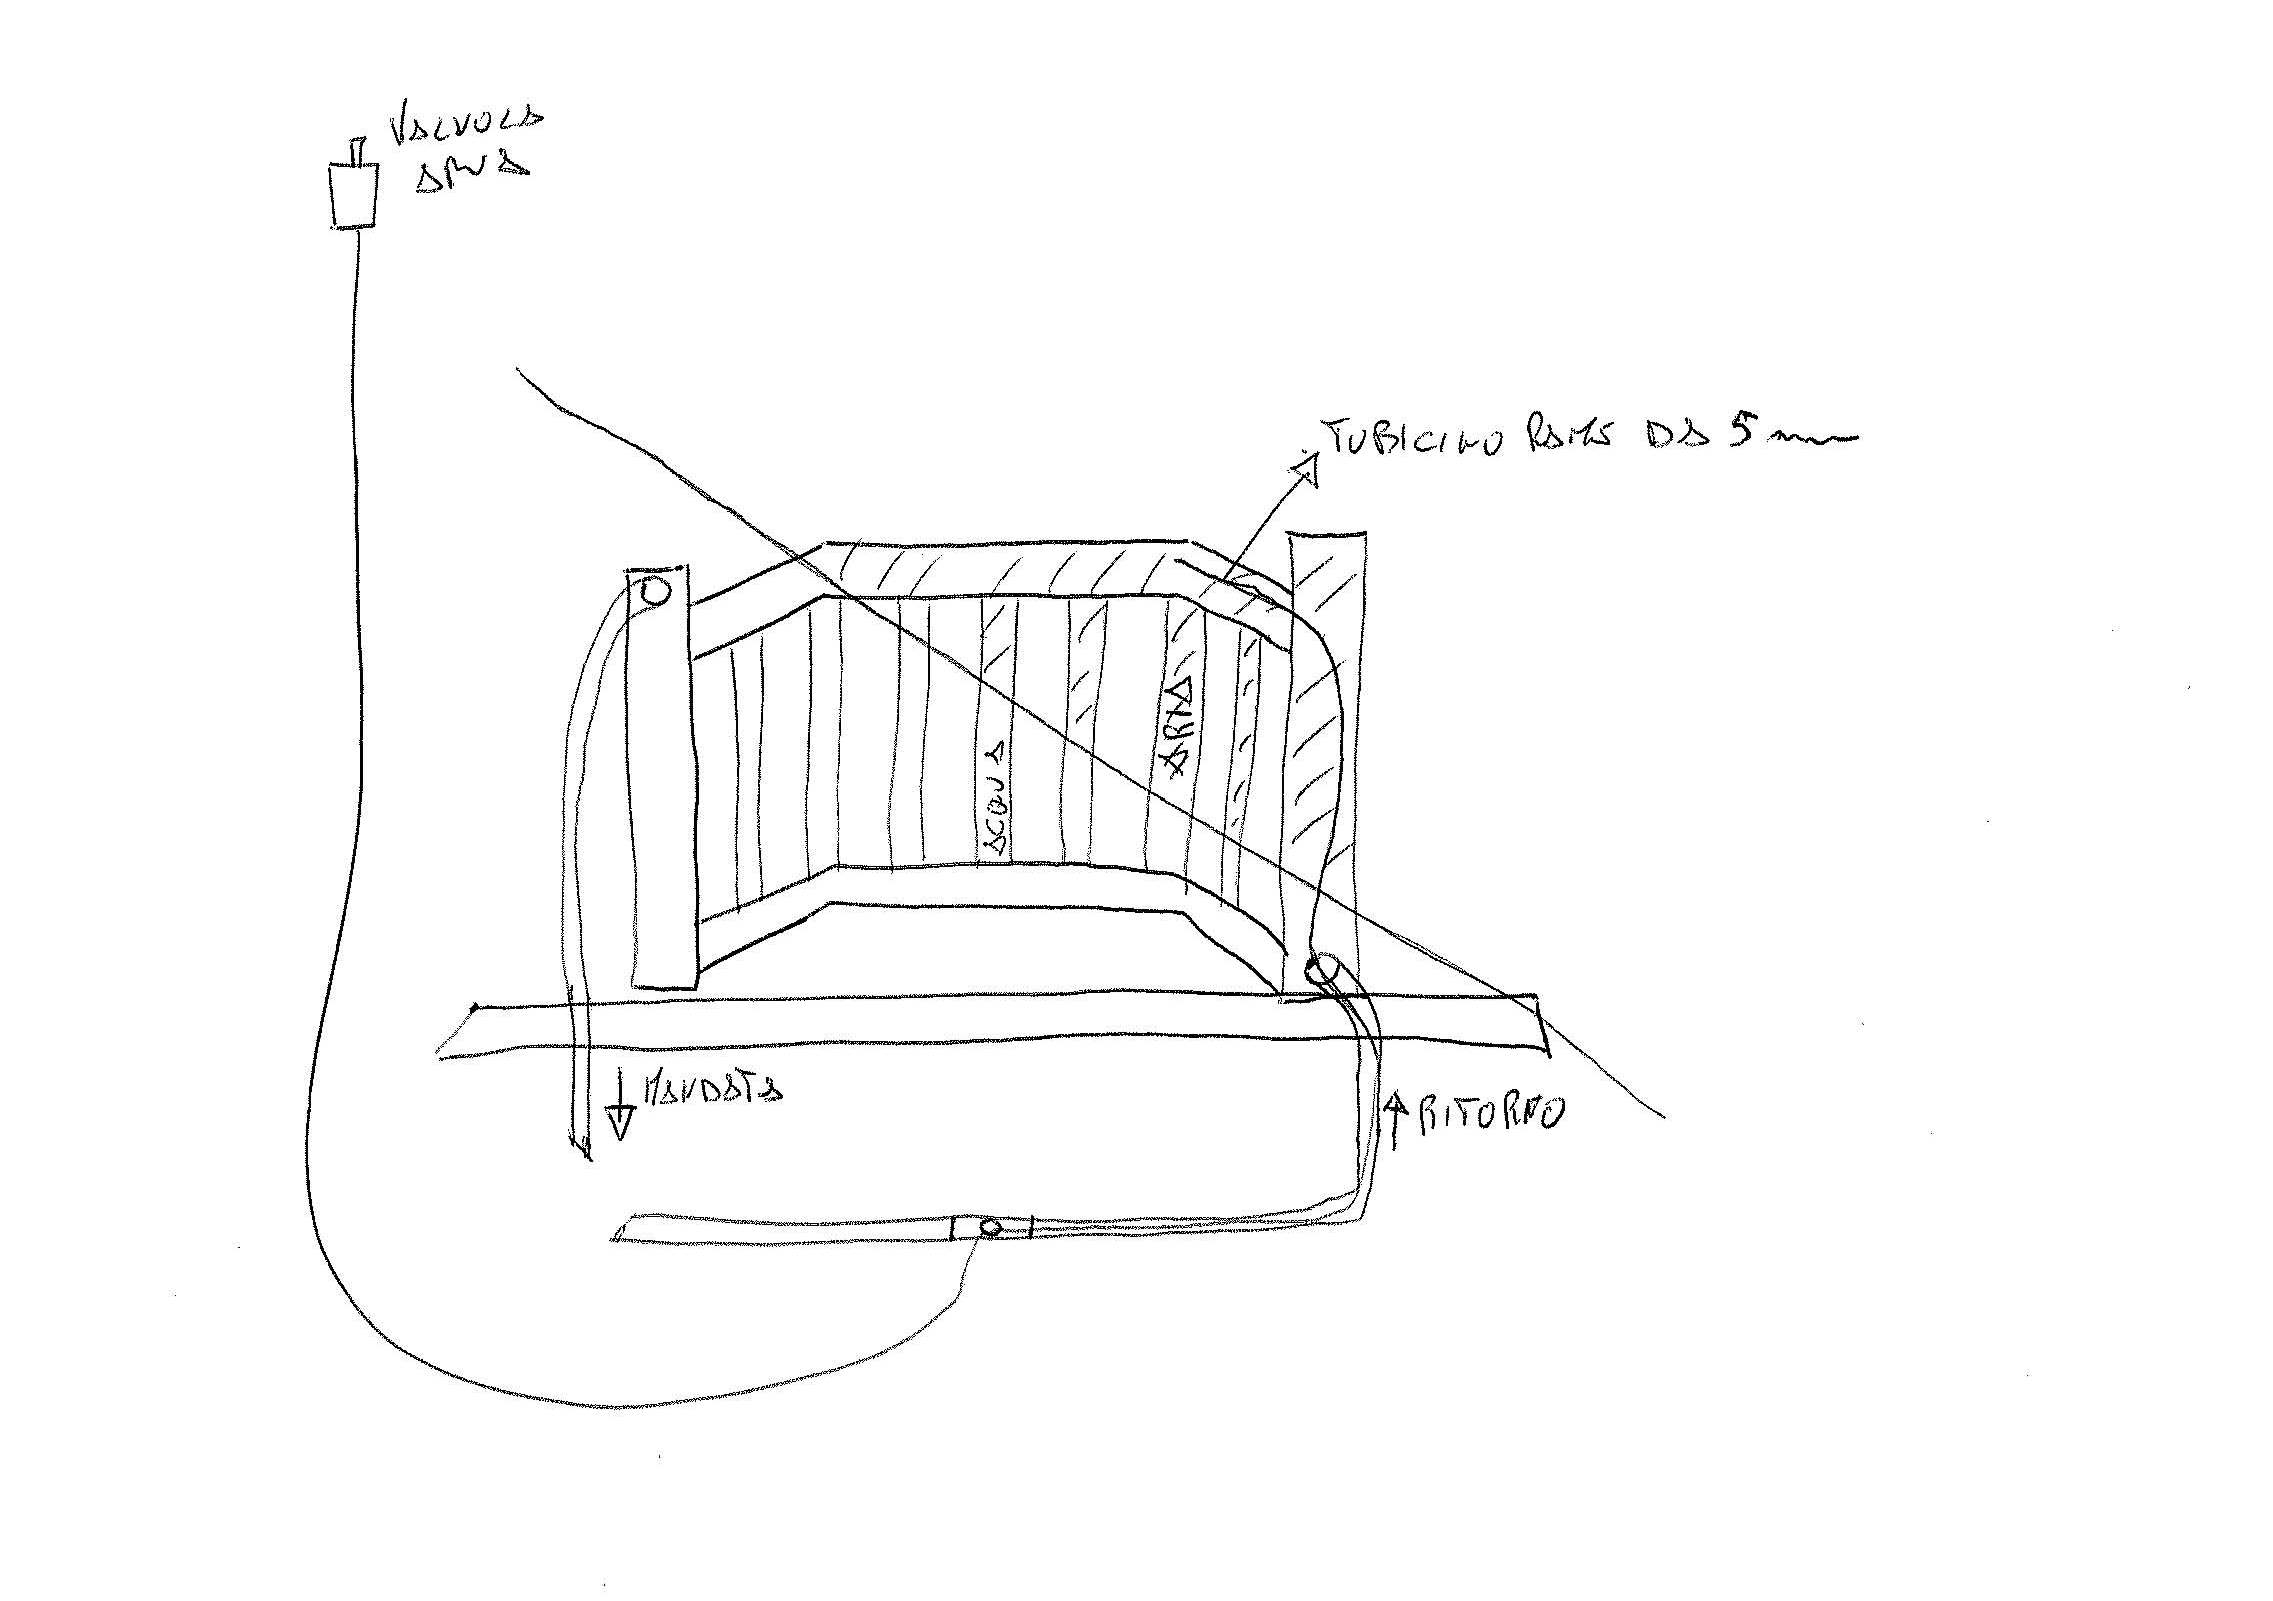 VALVOLA
TUBICINO RAME DA 5 mm
ARIA
ACQUA
MANDATA
RITORNO